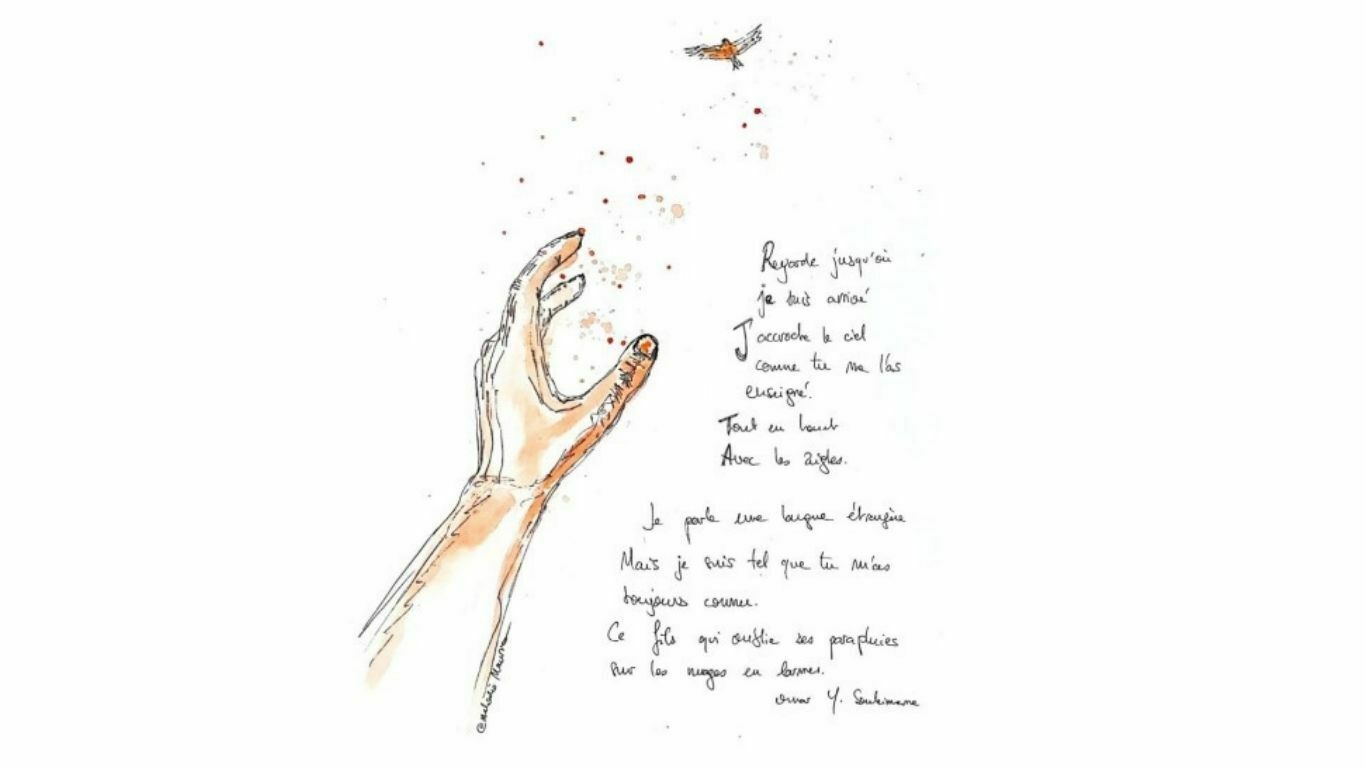 Regarde jusqu'où
je suis arrivé
J'accroche le ciel
comme tu me l'as
enseigné.
Tout en haut
Avec les aigles.
Je parle une langue étrangère
Mais je suis tel que tu m'as
toujours connu.
Ce fils qui oublie ses parapluies
sur les nuages en larmes.
Omar Y. Souleimane